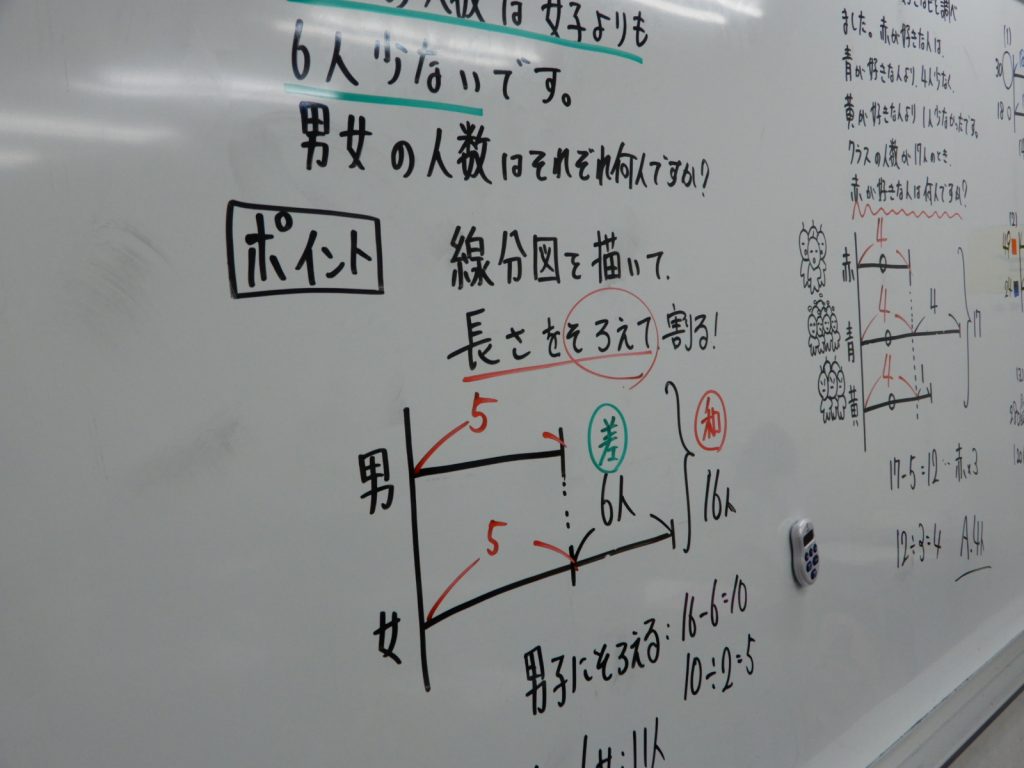 の人数は女子よりも
6人少ないです。
男女の人数はそれぞれ何人ですか?
ポイント
線分図を描いて、
長さをそろえて割る!
5
差
和
男
6人
16人
5
女
男子にそろえる:16-6=10
10÷2=5
女:11人
ました。赤が好きな人は、
青が好きな人より、4人少なく、
黄が好きな人より1人少なかったです。
クラスの人数が17人のとき、
赤が好きな人は何人ですか?
4
赤
4
4
17
青
4
1
黄
17-5=12…赤×3
12÷3=4
A.4人
(1)
30
18
(2)